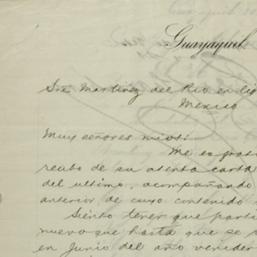 Guayaquil
Sres Martinez del Rio en liq
Mexico
Muy señores mios:
Me es grato
recibo de su atenta carta
del ultimo, acompañando
anterior de cuyo contenido
Siento tener que parti
nuevo que hasta que se
en Junio del año venider